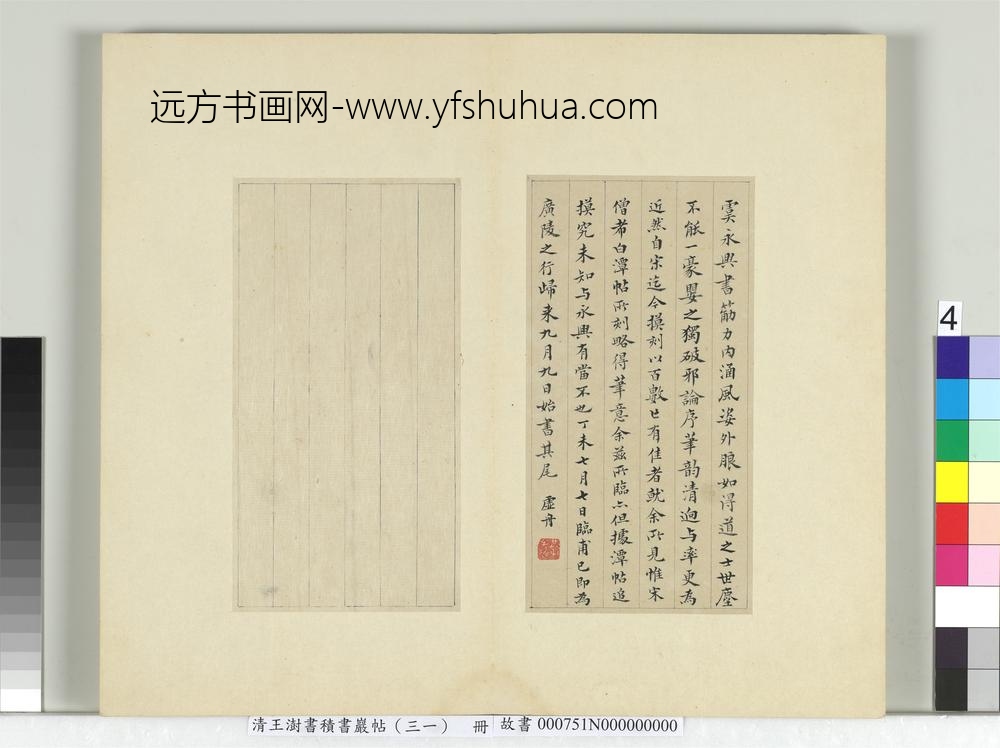 远方书画网-www.yfshuhua.com
虞永興書筋力內涵風姿外朗如得道之士世塵
不能一豪嬰之獨破邪論序筆韵清迥与率更為
近然自宋迄今摸刻以百數乜有佳者就余所見惟宋
僧希白潭帖所刻略得筆意余茲所臨亦但據潭帖追
摸究未知与永興有當不也丁未七月七日臨甫已即為
廣陵之行歸来九月九日始書其尾 虛舟
4
清王澍書積書巖帖(三一) 冊
故書 000751N000000000